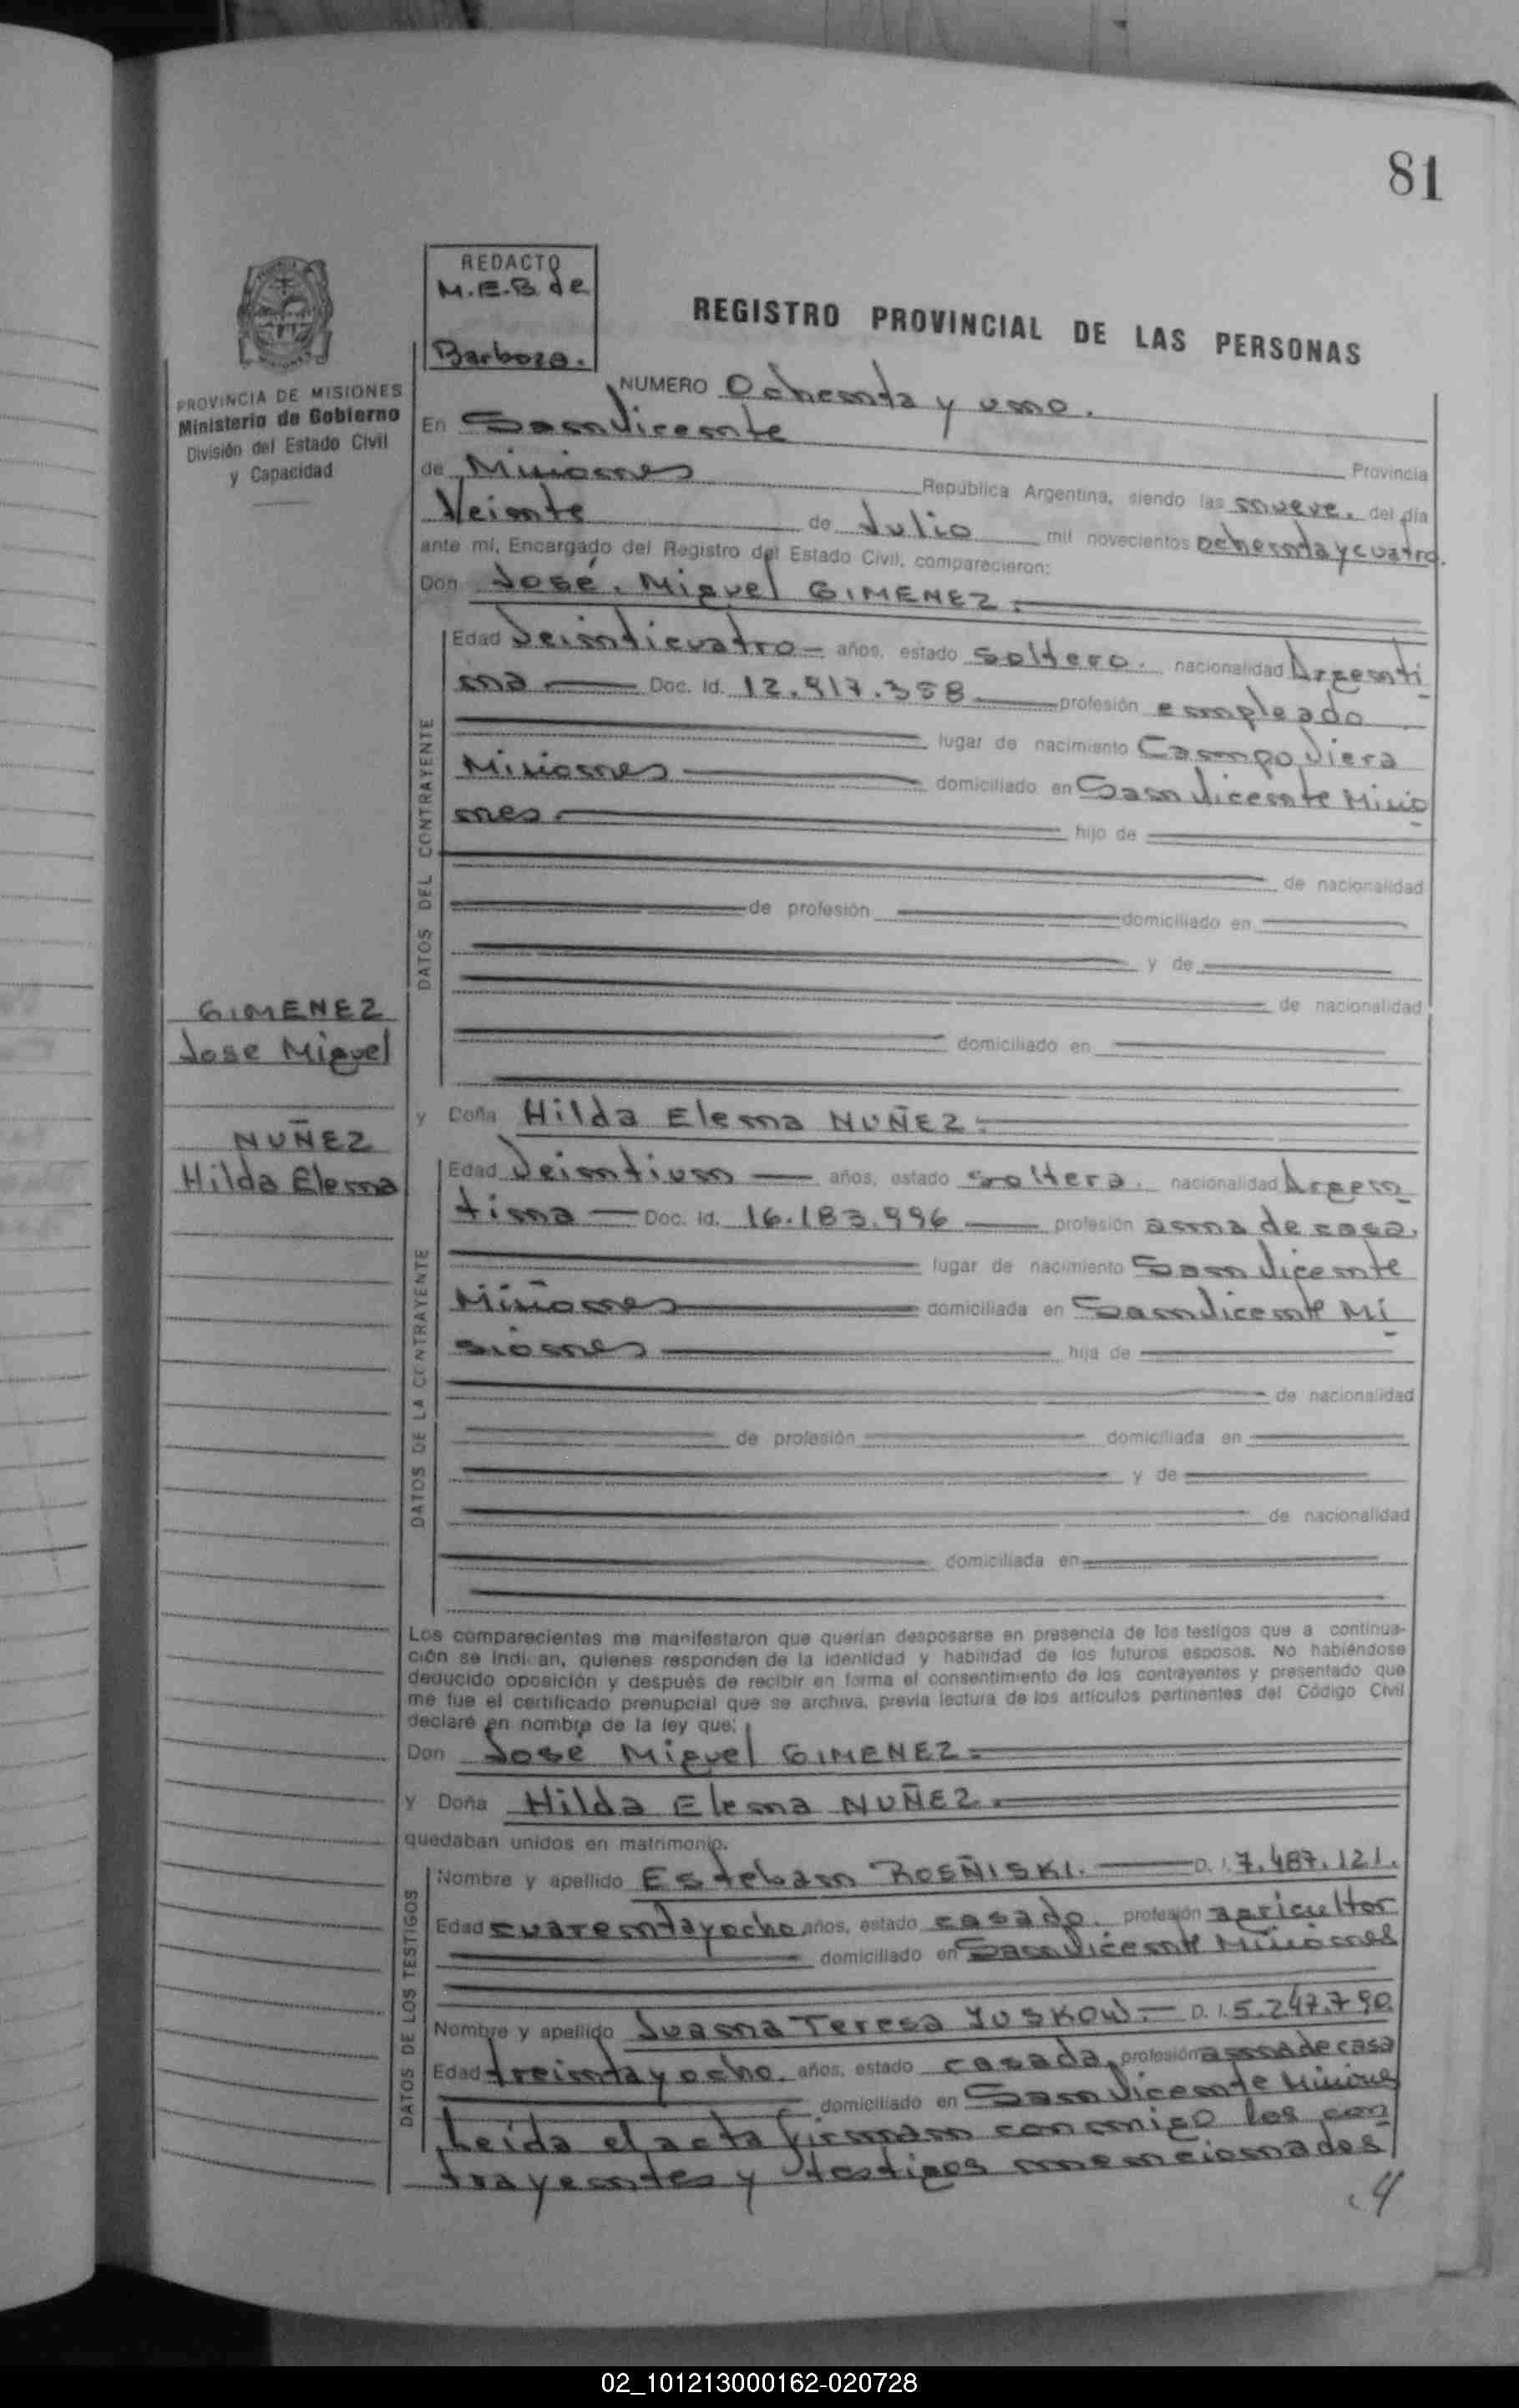 81
REDACTO
M.E.B. de
Barboza.
REGISTRO PROVINCIAL DE LAS PERSONAS
PROVINCIA DE MISIONES
Ministerio de Gobierno
División del Estado Civil
y Capacidad
NUMERO Ochenta y uno.
En San Vicente Provincia
de Misiones República Argentina, siendo las nueve. del día
Veinte de Julio mil novecientos ochenta y cuatro.
ante mí, Encargado del Registro del Estado Civil, comparecieron:
Don José. Miguel GIMENEZ.
DATOS DEL CONTRAYENTE
Edad Veinticuatro años, estado soltero. nacionalidad Argenti
na Doc. Id. 12.917.358 profesión empleado
lugar de nacimiento Campo Viera
Misiones domiciliado en San Vicente Misio
nes hijo de
de nacionalidad
de profesión domiciliado en
y de
de nacionalidad
domiciliado en
GIMENEZ
Jose Miguel
NUÑEZ
Hilda Elena
y Doña Hilda Elena NUÑEZ.
DATOS DE LA CONTRAYENTE
Edad Veintiun años, estado soltera. nacionalidad Argen
tina Doc. Id. 16.183.996 profesión ama de casa.
lugar de nacimiento San Vicente
Misiones domiciliada en San Vicente Mi
siones hija de
de nacionalidad
de profesión domiciliada en
y de
de nacionalidad
domiciliada en
Los comparecientes me manifestaron que querían desposarse en presencia de los testigos que a continua-
ción se indican, quienes responden de la identidad y habilidad de los futuros esposos. No habiéndose
deducido oposición y después de recibir en forma el consentimiento de los contrayentes y presentado que
me fue el certificado prenupcial que se archiva, previa lectura de los artículos pertinentes del Código Civil
declaré en nombre de la ley que:
Don José Miguel GIMENEZ.
y Doña Hilda Elena NUÑEZ.
quedaban unidos en matrimonio.
DATOS DE LOS TESTIGOS
Nombre y apellido Esteban ROSÑISKI. D. I. 7.487.121.
Edad cuarenta y ocho años, estado casado. profesión agricultor
domiciliado en San Vicente Misiones
Nombre y apellido Juana Teresa YUSKOW. D. I. 5.247.790
Edad treinta y ocho. años, estado casada, profesión ama de casa
domiciliado en San Vicente Misiones
Leída el acta firman conmigo los con
trayentes y testigos mencionados
02_101213000162-020728